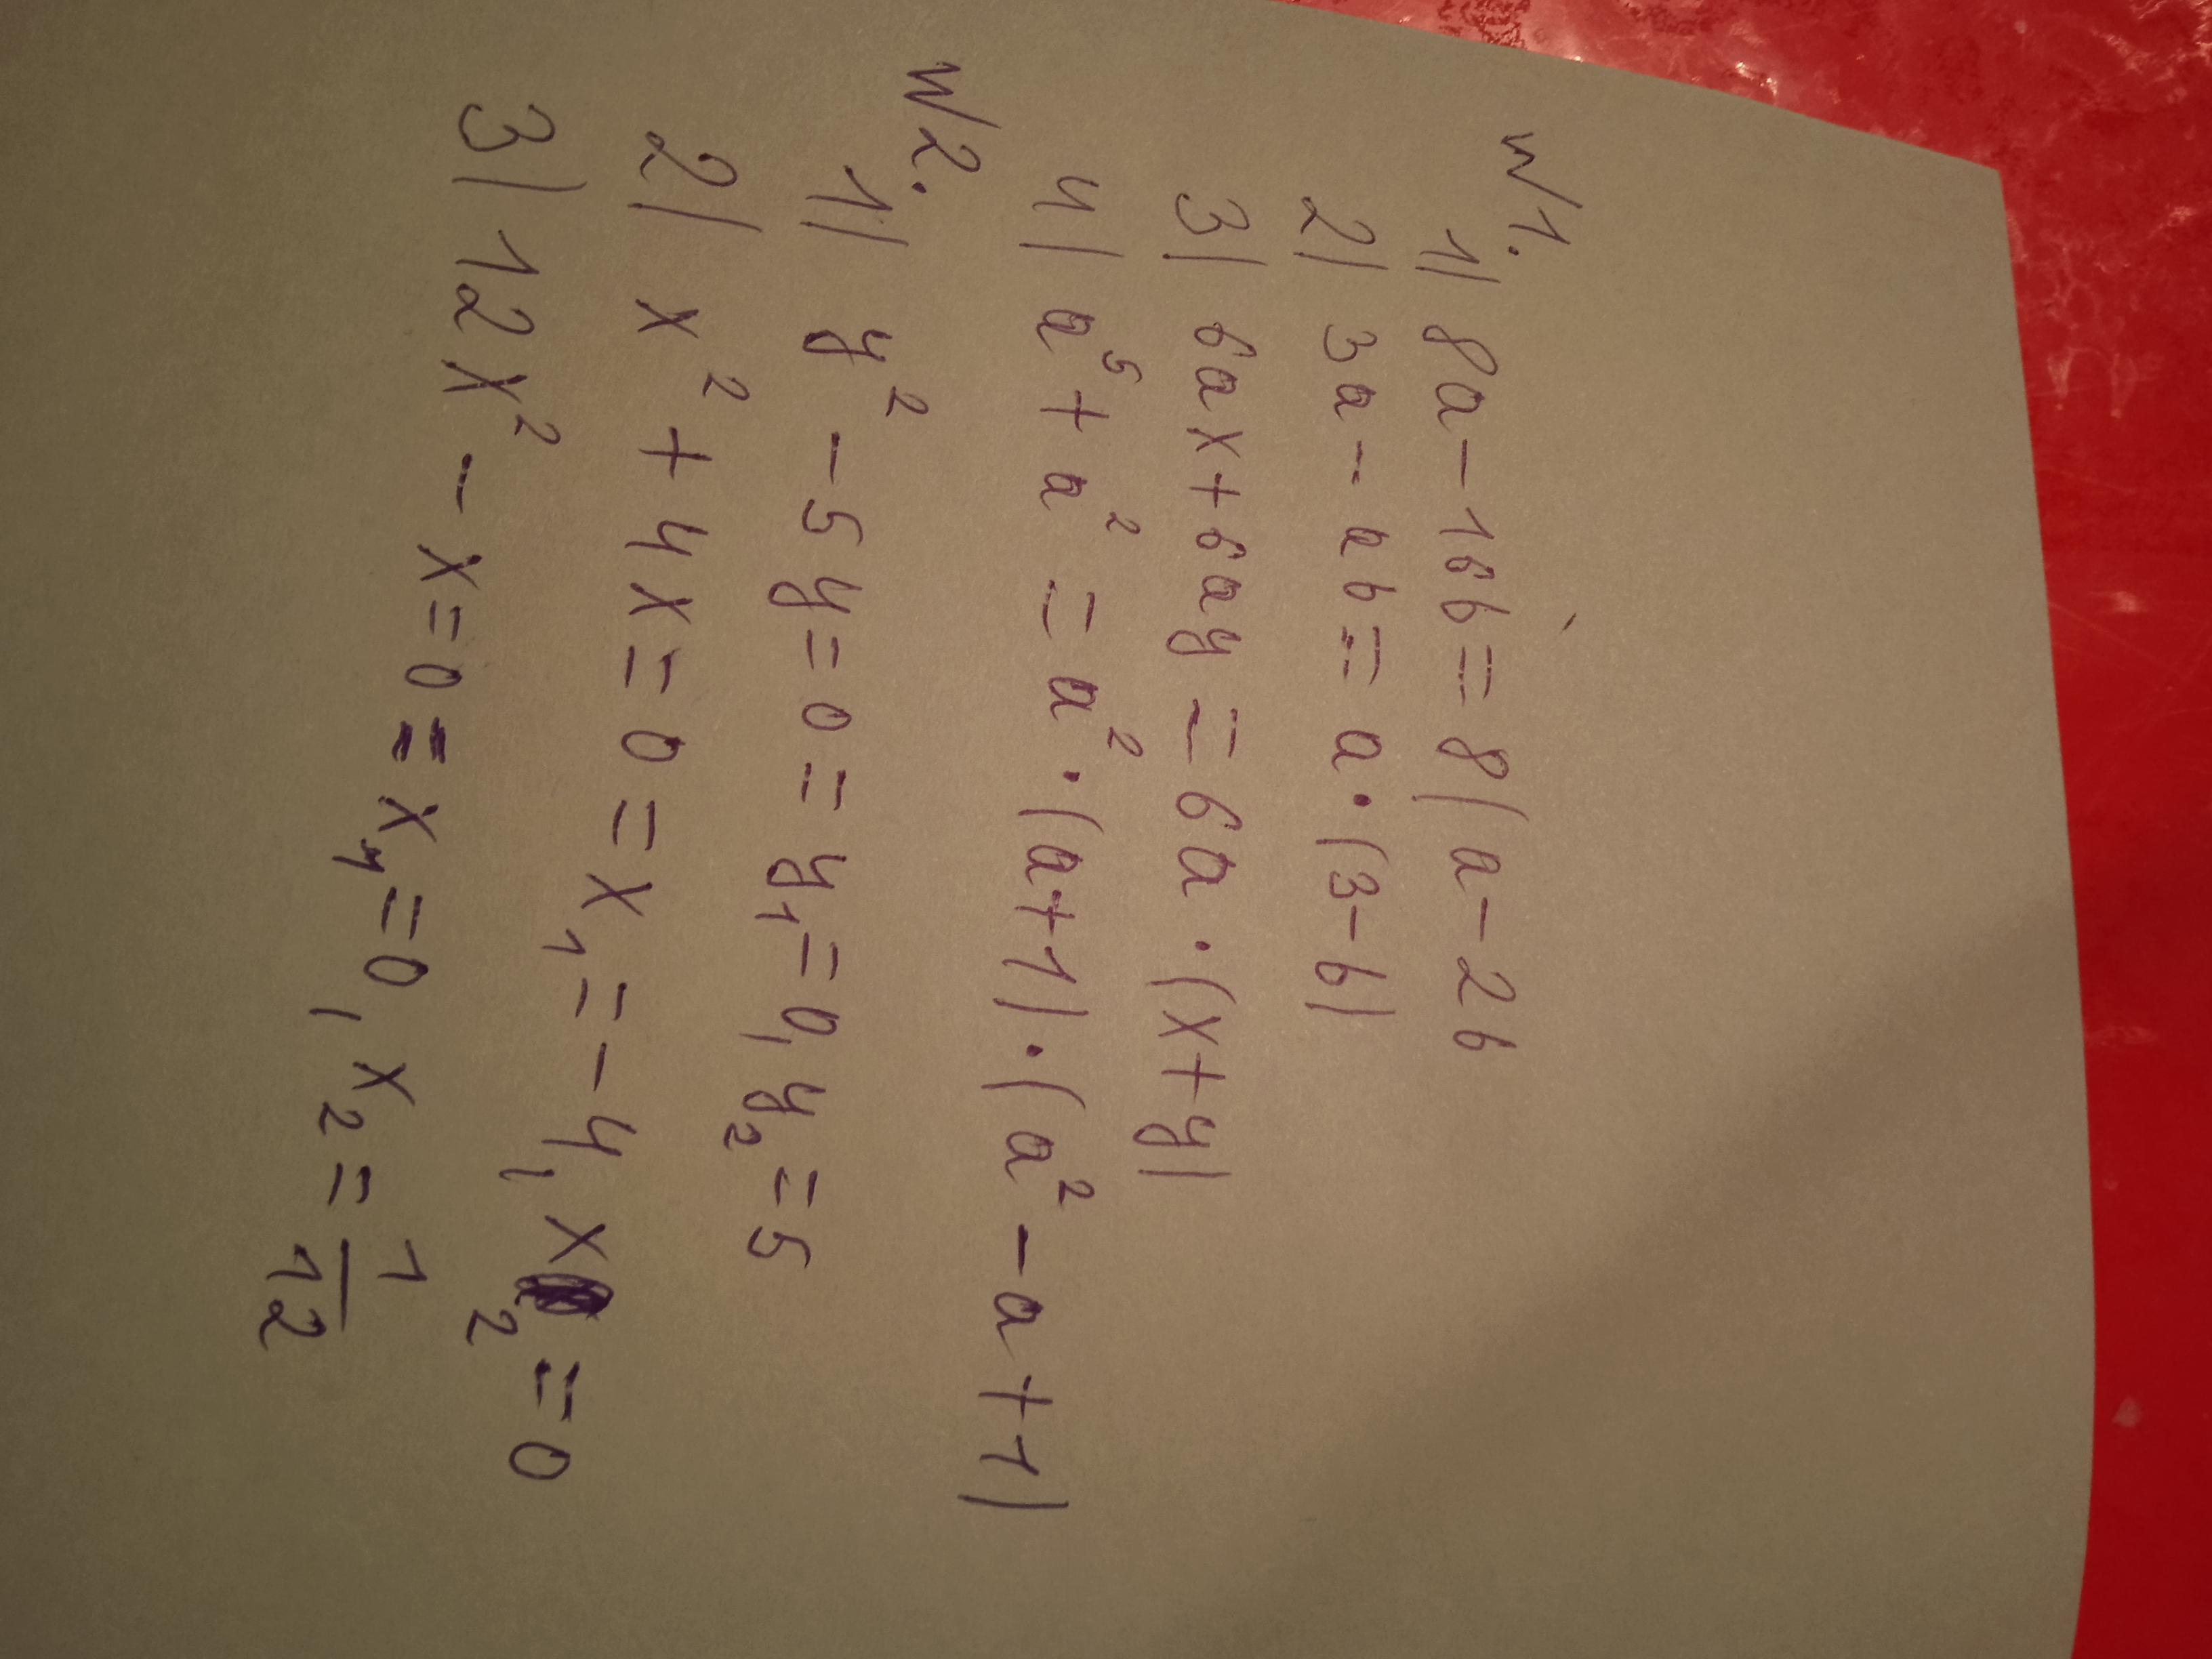 N1.
1) 8a-16b=8(a-2b
2) 3a-ab=a·(3-b)
3) 6ax+6ay=6a·(x+y)
4) a⁵+a²=a²·(a+1)·(a²-a+1)
N2.
1) y²-5y=0=y₁=0, y₂=5
2) x²+4x=0=x₁=-4, x₂=0
3) 12x²-x=0=x₁=0, x₂=1/12